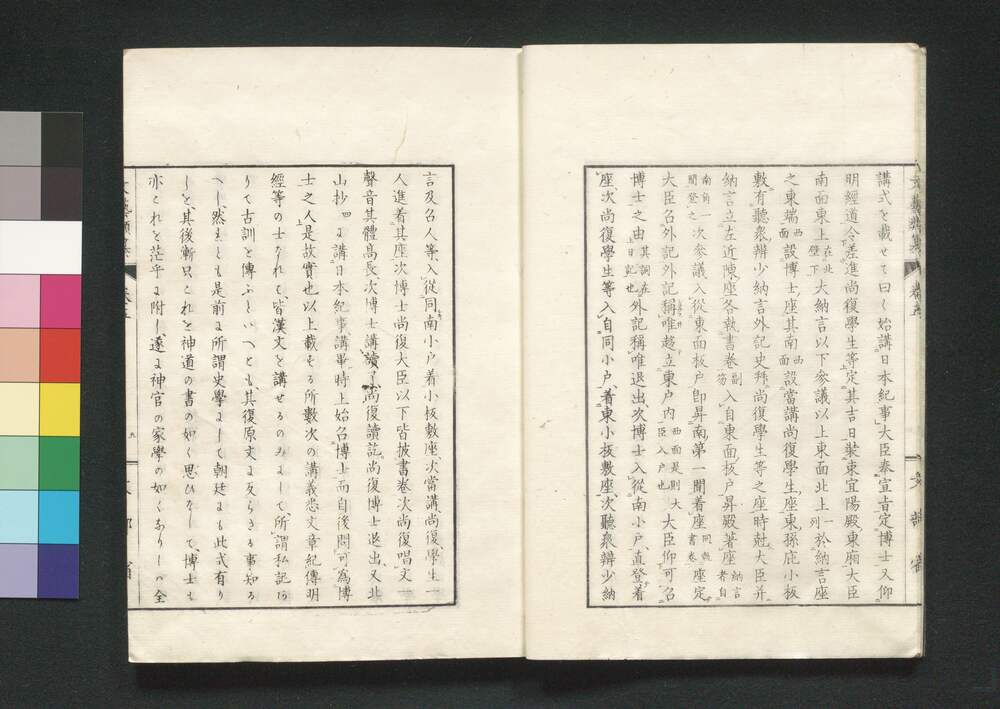 講式を載せて曰く始講日本紀事大臣奉宣旨定博士又仰
明經道令差進尚復學生等定其吉日裝束宜陽殿東廂大臣
南面東上在北壁下大納言以下參議以上東面北上一列於納言座
之東端西面設博士座其南西面設當講尚復學生座東孫庇小板
敷有聽衆辨少納言外記史拜尚復學生等之座時尅大臣幷
納言立左近陣座各執書卷副笏入自東面板戶昇殿著座納言者自
南角一間登之次參議入從東面板戶卽昇南第一間着座同執書卷座定
大臣召外記外記稱唯趍立東戶内西面是則大臣入戶也大臣仰可召
博士之由其詞在日記也外記稱唯退出次博士入從南小戶直登着
座次尚復學生等入自同小戶着東小板敷座次聽衆辨少納
言及召人等入從同南小戶着小板敷座次當講尚復學生一
人進着其座次博士尚復大臣以下皆披書卷次尚復唱文一
聲音其體高長次博士講讀了尚復讀訖尚復博士退出又北
山抄四に講日本紀事講畢時上始召博士而自後問可為博
士之人是故實也以上載する所數次の講義悉文章紀傳明
經等の士なれは皆漢文を講せるのみにして所謂私記あ
りて古訓を傳ふといへとも其復原文に反らさる事知る
へし然ましも是前に所謂史學にして朝廷にも此式有り
しを其後漸只これを神道の書の如く思ひなして博士も
亦これを茫乎に附し遂に神官の家學の如くありしハ全
文部省